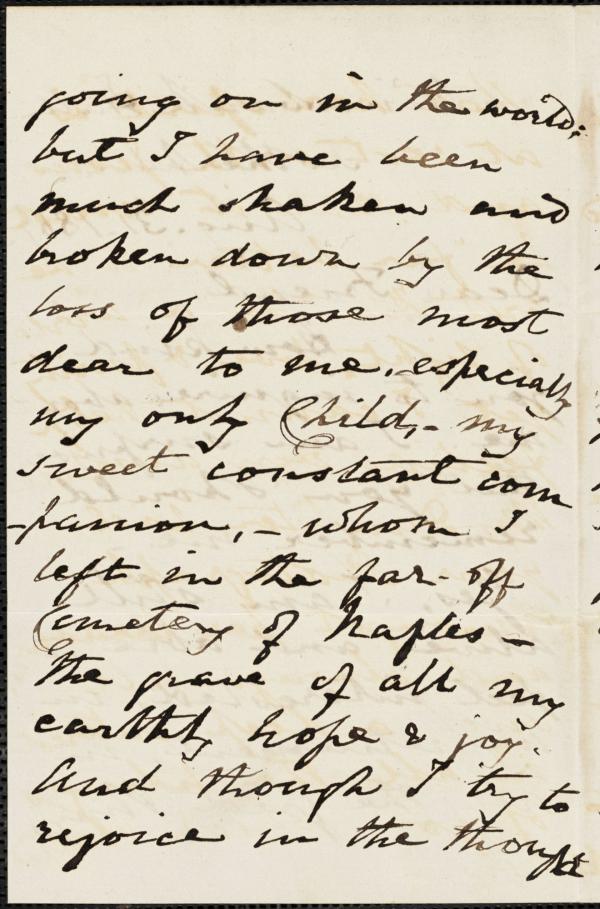 going on in the world;
but I have been
much shaken and
broken down by the
loss of those most
dear to me, - especially
my only Child, - my
sweet constant com
-panion, - whom I
left in the far-off
Cemetery of Naples -
the grave of all my
earthly hope & joy.
And though I try to
rejoice in the thought